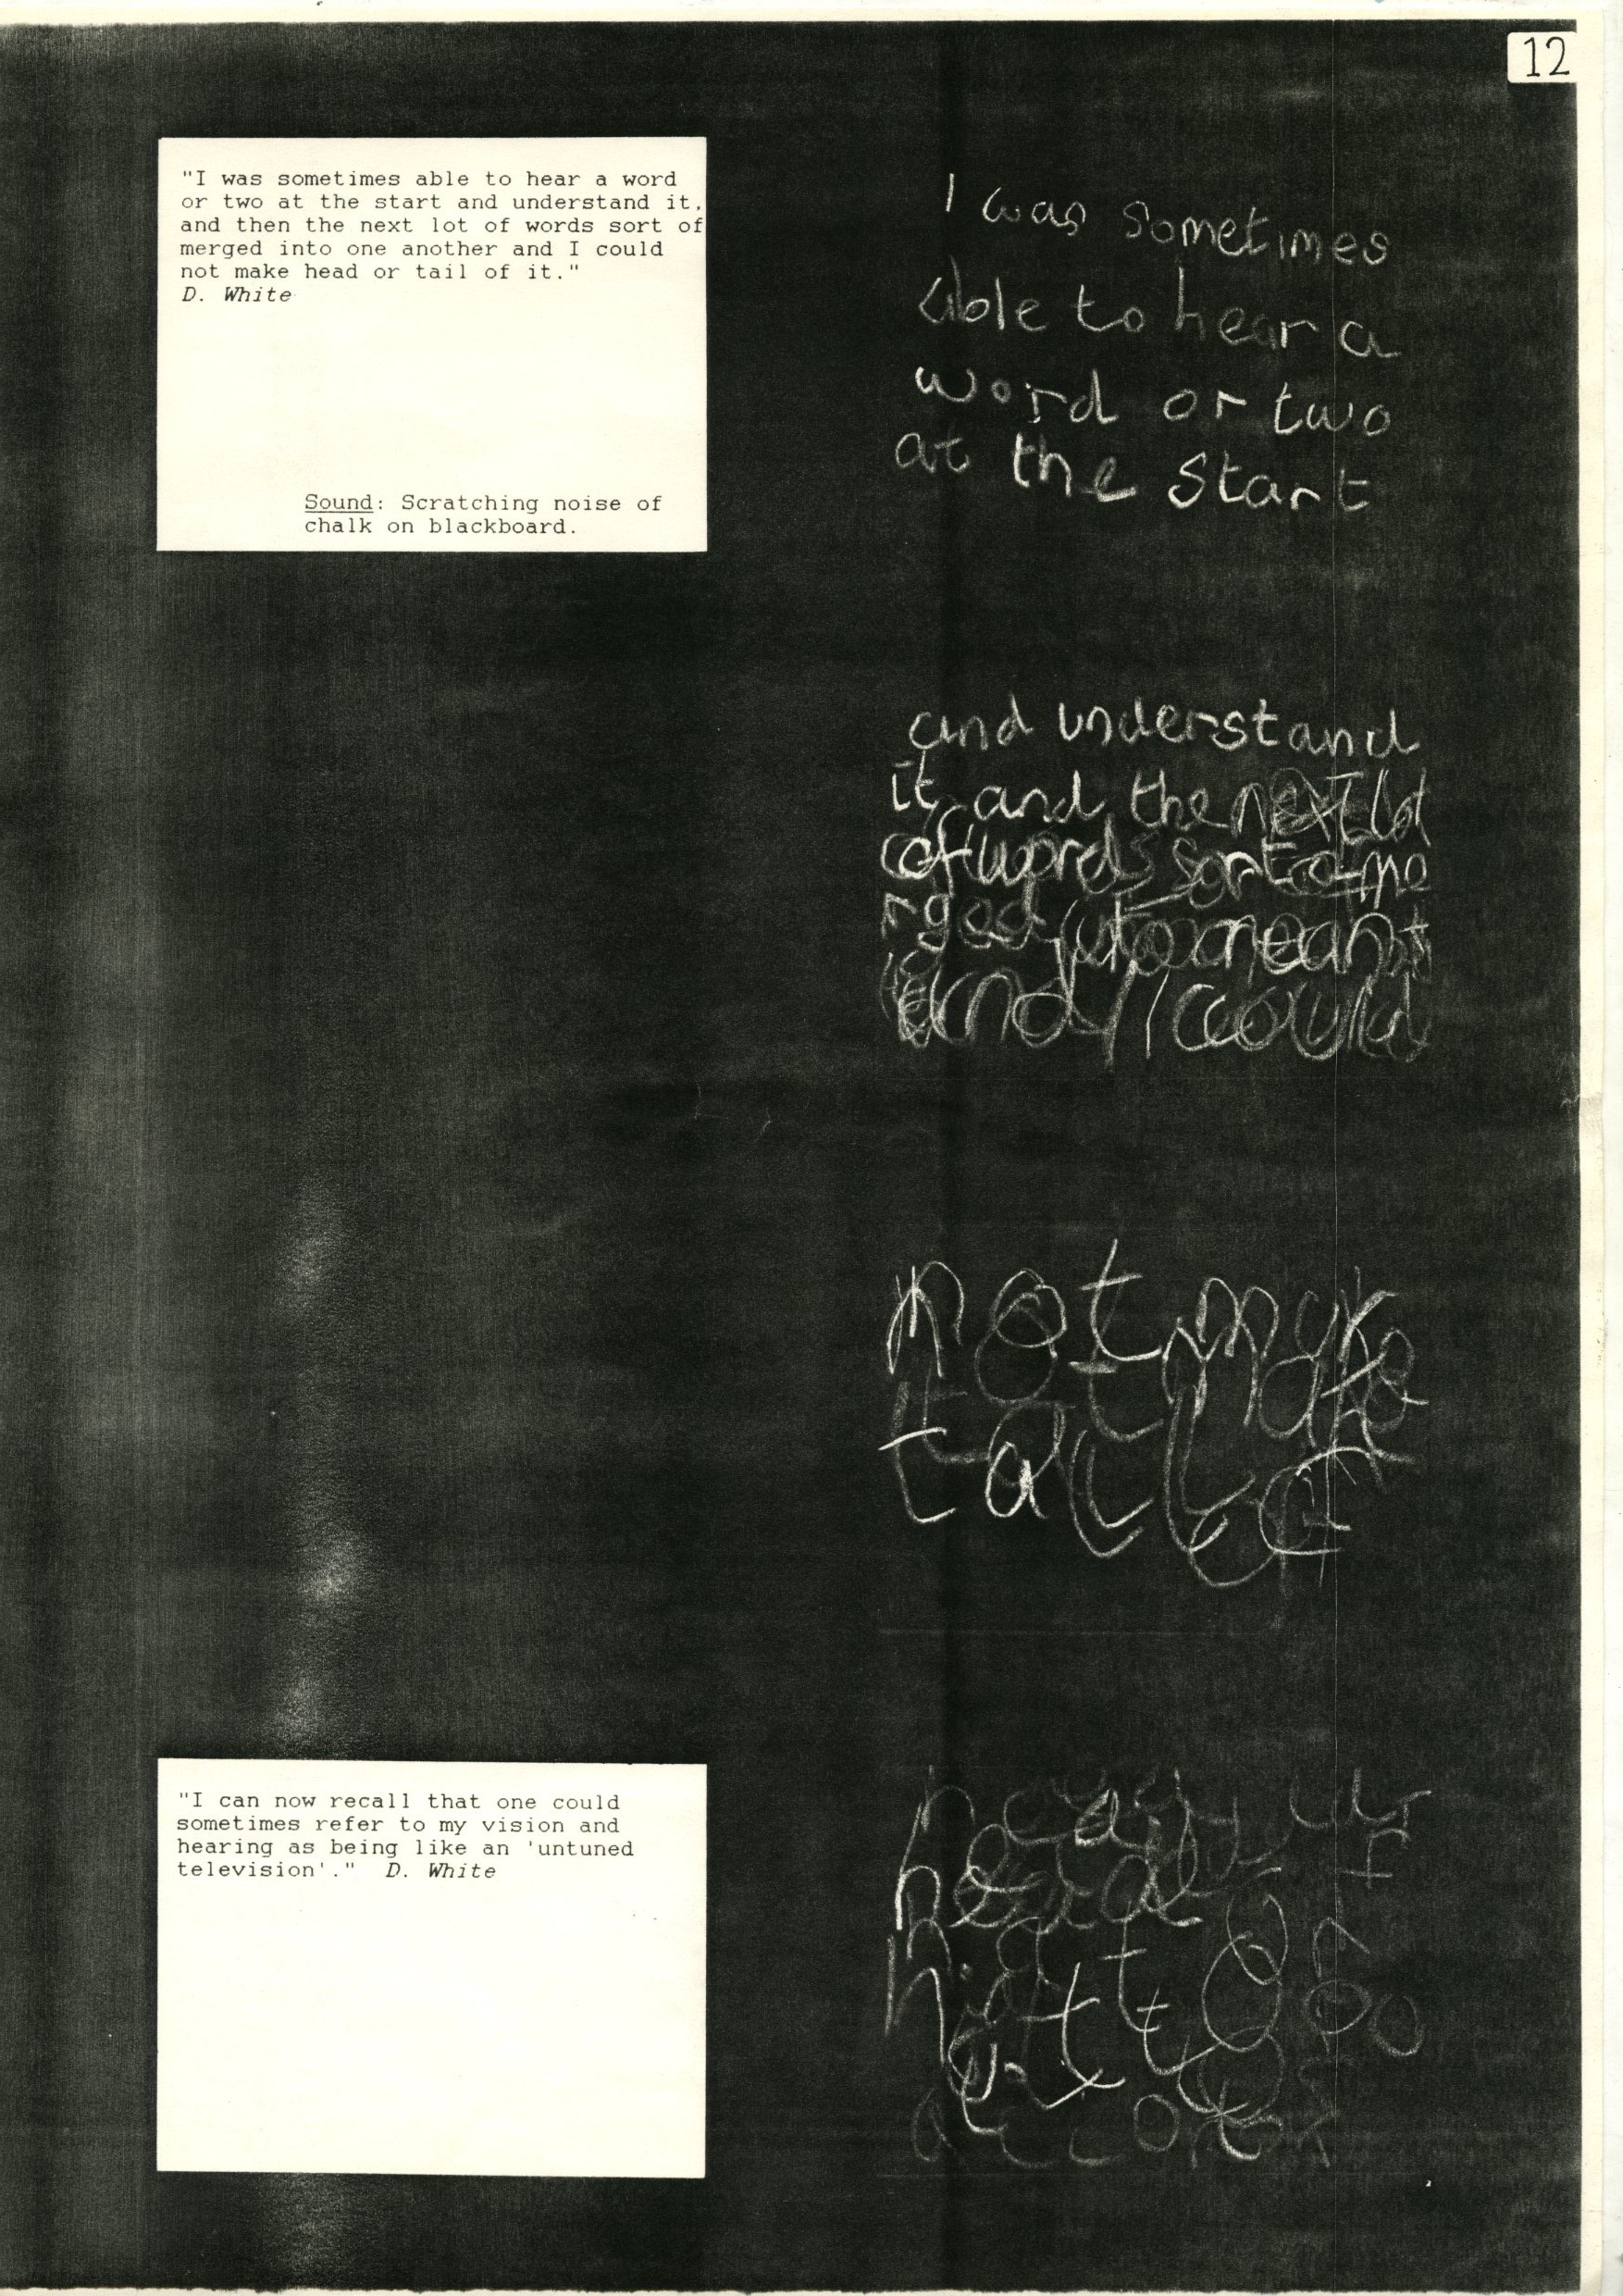 12
"I was sometimes able to hear a word
or two at the start and understand it,
and then the next lot of words sort of
merged into one another and I could
not make head or tail of it."
D. White
Sound: Scratching noise of
chalk on blackboard.
I was sometimes
able to hear a
word or two
at the start
and understand
it and the next lot
of words sort of me
rged into
and I could
not make
tail of
"I can now recall that one could
sometimes refer to my vision and
hearing as being like an 'untuned
television'." D. White
head